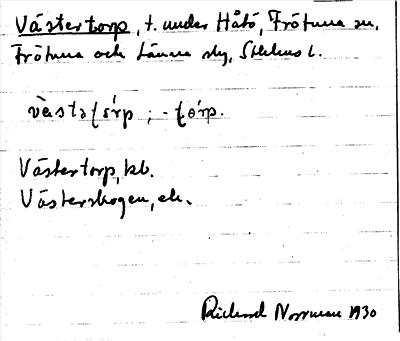 Västertorp, t. under Håtö, Frötuna sn,
Frötuna och Länna slg, Sthlms l.
västətɵ́rp ; -tɵ́rp.
Västertorp, kb.
Västerskogen, ek.
Richard Norrman 1930